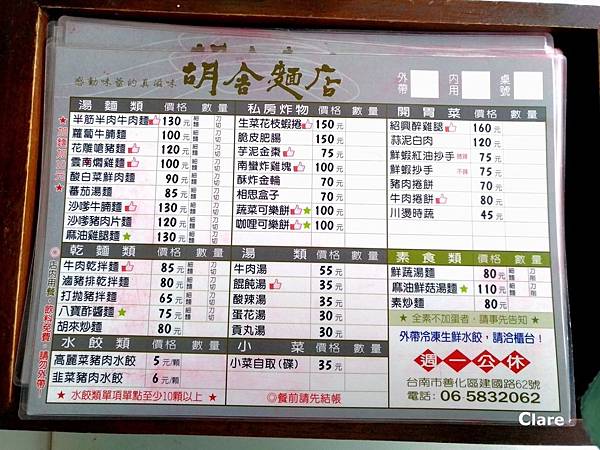 感動味蕾的真滋味
胡舍麵店
外帶
內用
桌號
湯麵類 價格 數量
半筋半肉牛肉麵 130元 細麵 刀切
蘿蔔牛腩麵 100元 細麵 刀切
花雕嗆豬麵 120元 細麵 刀切
雲南燜雞麵 100元 細麵 刀切
酸白菜鮮肉麵 90元 細麵 刀切
蕃茄湯麵 85元 細麵 刀切
沙嗲牛腩麵 130元 細麵 刀切
沙嗲豬肉片麵 120元 細麵 刀切
麻油雞腿麵★ 130元 細麵 刀切
私房炸物 價格 數量
生菜花枝蝦捲 150元
脆皮肥腸 150元
芋泥金棗 75元
南蠻炸雞塊 100元
酥炸金輪 70元
相思盒子 70元
蔬菜可樂餅★ 100元
咖哩可樂餅★ 100元
開胃菜 價格 數量
紹興醉雞腿 160元
蒜泥白肉 120元
鮮蝦紅油抄手 微辣 75元
鮮蝦抄手 不辣 75元
豬肉捲餅 70元
牛肉捲餅 80元
川燙時蔬 45元
乾麵類 價格 數量
牛肉乾拌麵 85元 細麵 刀切
滷豬排乾拌麵 80元 細麵 刀切
打拋豬拌麵 65元 細麵 刀切
八寶酢醬麵★ 75元 細麵 刀切
胡來炒麵 80元
湯類 價格 數量
牛肉湯 55元
餛飩湯 35元
酸辣湯 35元
蛋花湯 30元
貢丸湯 30元
素食類 價格 數量
鮮蔬湯麵 80元 細麵
麻油鮮菇湯麵★ 110元 細麵
素炒麵 80元
★全素不加蛋者，請事先告知★
水餃類 價格 數量
高麗菜豬肉水餃 5元/顆
韭菜豬肉水餃 6元/顆
★水餃類單項單點至少10顆以上★
小菜 價格 數量
小菜自取(碟) 35元
◎餐前請先結帳
外帶冷凍生鮮水餃，請洽櫃台！
週一公休
台南市善化區建國路62號
電話：06-5832062
◎店內用餐，飲料免費，請勿外帶！
Clare